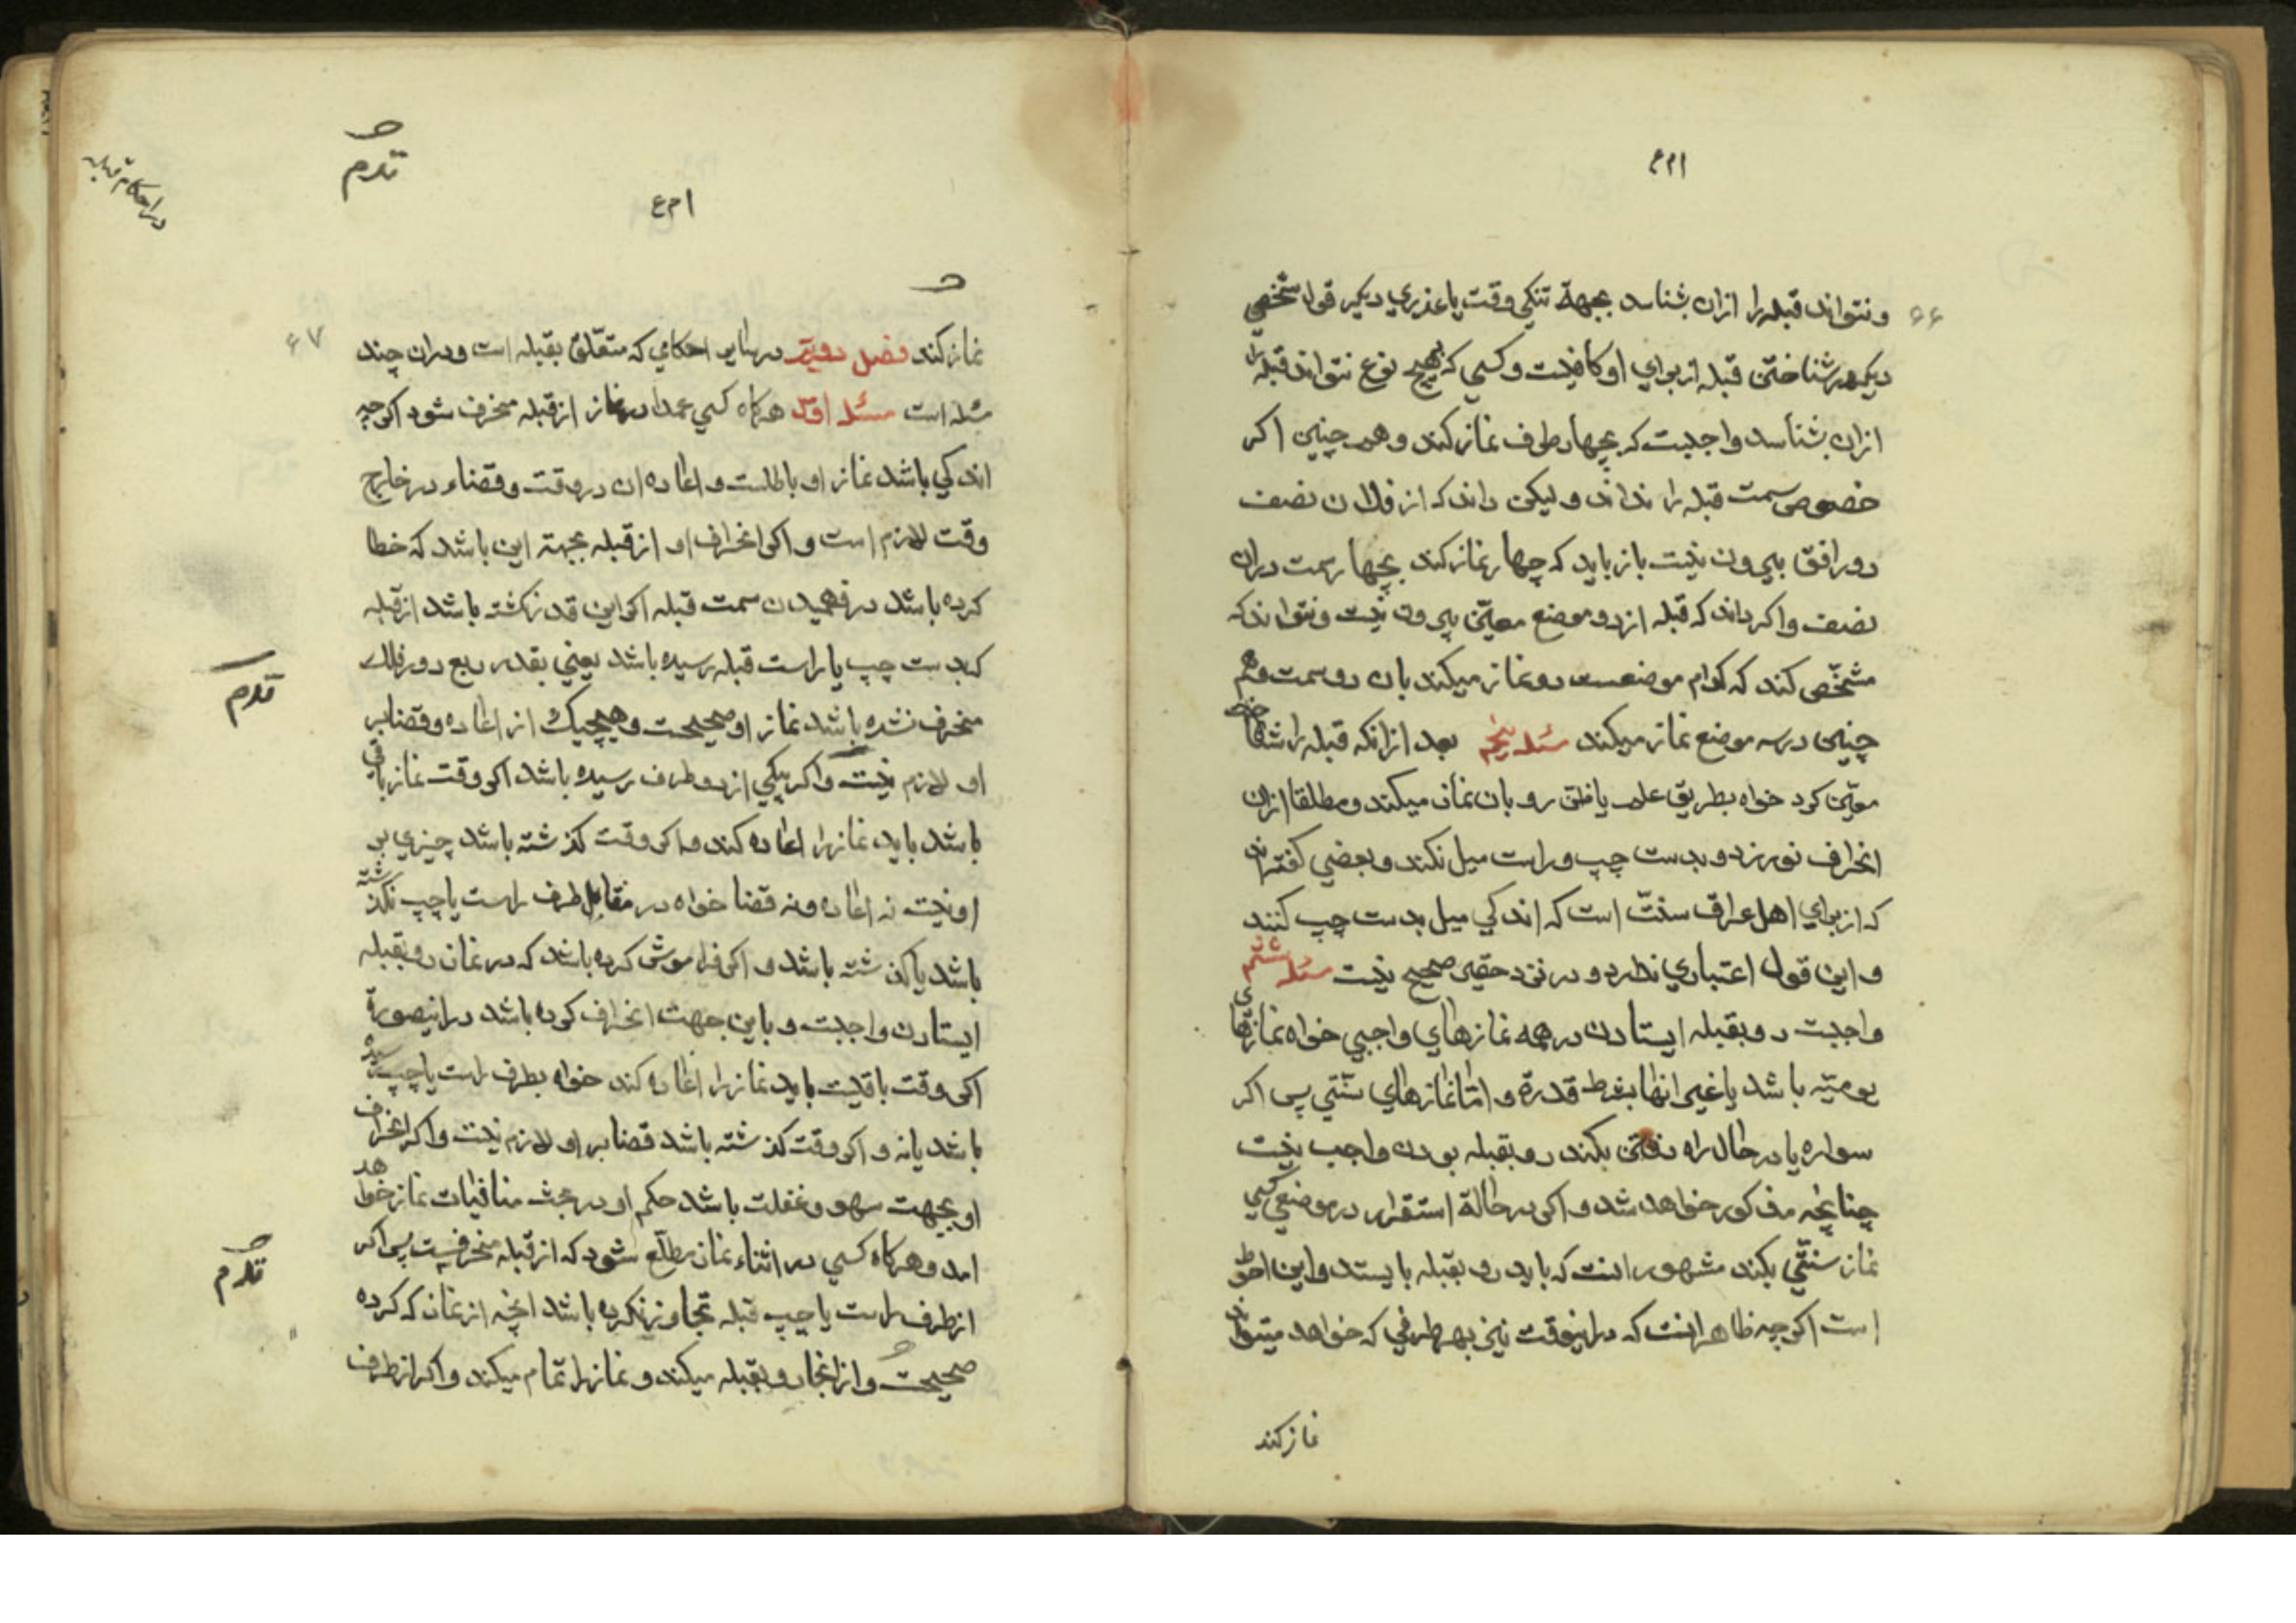 ۶۶
ونتواند قبله را ازان بشناسد بجهة تنکی وقت یا عذری دیکر قول شخصی
دیکر در شناختن قبله از برای او کافیست و کسی که بهیچ نوع نتواند قبله را
ازان بشناسد واجبست که بچهار طرف نماز کند و هم چنین اکر
خصوص سمت قبله را نداند و لیکن داند که از فلان نصف
دور افق بیرون نیست باز باید که چهار نماز کند بچهار سمت دران
نصف و اکر داند که قبله از دو موضع معین بیرون نیست و نتواند که
مشخص کند که کدام موضعست دو نماز میکند بان دو سمت و هم
چنین در سه موضع نماز میکند مسئله پنجم بعد ازانکه قبله را شناخت
معین کرد خواه بطریق علم یا ظن رو بان نماز میکند و مطلقا ازان
انحراف نورزد و بدست چپ و راست میل نکند و بعضی کفته اند
که از برای اهل عراق سنت است که اندکی میل بدست چپ کنند
و این قول اعتباری ندارد و در نزد حقیر صحیح نیست مسئله ششم
واجبست رو بقبله ایستادن در همه نمازهای واجبی خواه نمازهای
یومیه باشد یا غیر انها بشرط قدرة و اما نمازهای سنتی پس اکر
سواره یا در حال راه رفتن بکند رو بقبله بودن واجب نیست
چنانچه مذکور خواهد شد و اکر در حالة استقرار در موضعی کسی
نماز سنتی بکند مشهور انست که باید رو بقبله بایستد و این احوط
است اکر چه ظاهر انست که دراینوقت نیز بهر طرفی که خواهد میتواند
نماز کند
در احکام قبله
نماز کند فصل دویم در بیان احکامی که متعلق بقبله است و دران چند
۶۷
مسئله است مسئله اول هرکاه کسی عمدا در نماز از قبله منحرف شود اکر چه
اندکی باشد نماز او باطلست و اعاده ان در وقت و قضاء در خارج
وقت لازم است و اکر انحراف او از قبله بجهة این باشد که خطا
کرده باشد در فهمیدن سمت قبله اکر این قدر نکشته باشد از قبله
که بدست چپ یا راست قبله رسیده باشد یعنی بقدر ربع دور فلک
منحرف نشده باشد نماز او صحیحست و هیچیک از اعاده و قضا بر
او لازم نیست و اکر بیکی از دو طرف رسیده باشد اکر وقت نماز باقی
باشد باید نماز را اعاده کند و اکر وقت کذشته باشد چیزی بر
او نیست نه اعاده و نه قضا خواه در مقابل طرف راست یا چپ نکذشته
باشد یا کذشته باشد و اکر فراموش کرده باشد که در نماز رو بقبله
ایستادن واجبست و باین جهت انحراف کرده باشد دراینصورة
اکر وقت باقیست باید نماز را اعاده کند خواه بطرف راست یا چپ رسیده
باشد یا نه و اکر وقت کذشته باشد قضا بر او لازم نیست و اکر انحراف
او بجهت سهو و غفلت باشد حکم او در بحث منافیات نماز خواهد
امد و هرکاه کسی در اثناء نماز مطلع شود که از قبله منحرفست پس اکر
از طرف راست یا چپ قبله تجاوز نکرده باشد انچه از نماز که کرده
صحیحست و از انجا رو بقبله میکند و نماز را تمام میکند و اکر از طرف